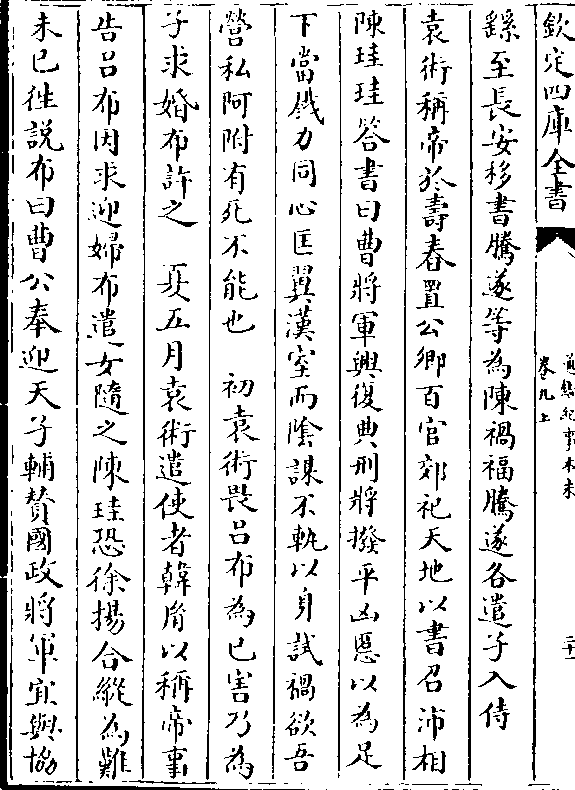 欽定四庫全書
通鑑紀事本末
卷九上
二十一
繇至長安移書騰遂等為陳禍福騰遂各遣子入侍
袁術稱帝於壽春置公卿百官郊祀天地以書召沛相
陳珪珪答書曰曹將軍興復典刑將撥平凶慝以為足
下當戮力同心匡翼漢室而陰謀不軌以身試禍欲吾
營私阿附有死不能也　初袁術畏呂布為已害乃為
子求婚布許之　夏五月袁術遣使者韓胤以稱帝事
告呂布因求迎婦布遣女隨之陳珪恐徐揚合縱為難
未已徃說布曰曹公奉迎天子輔賛國政將軍宜與協